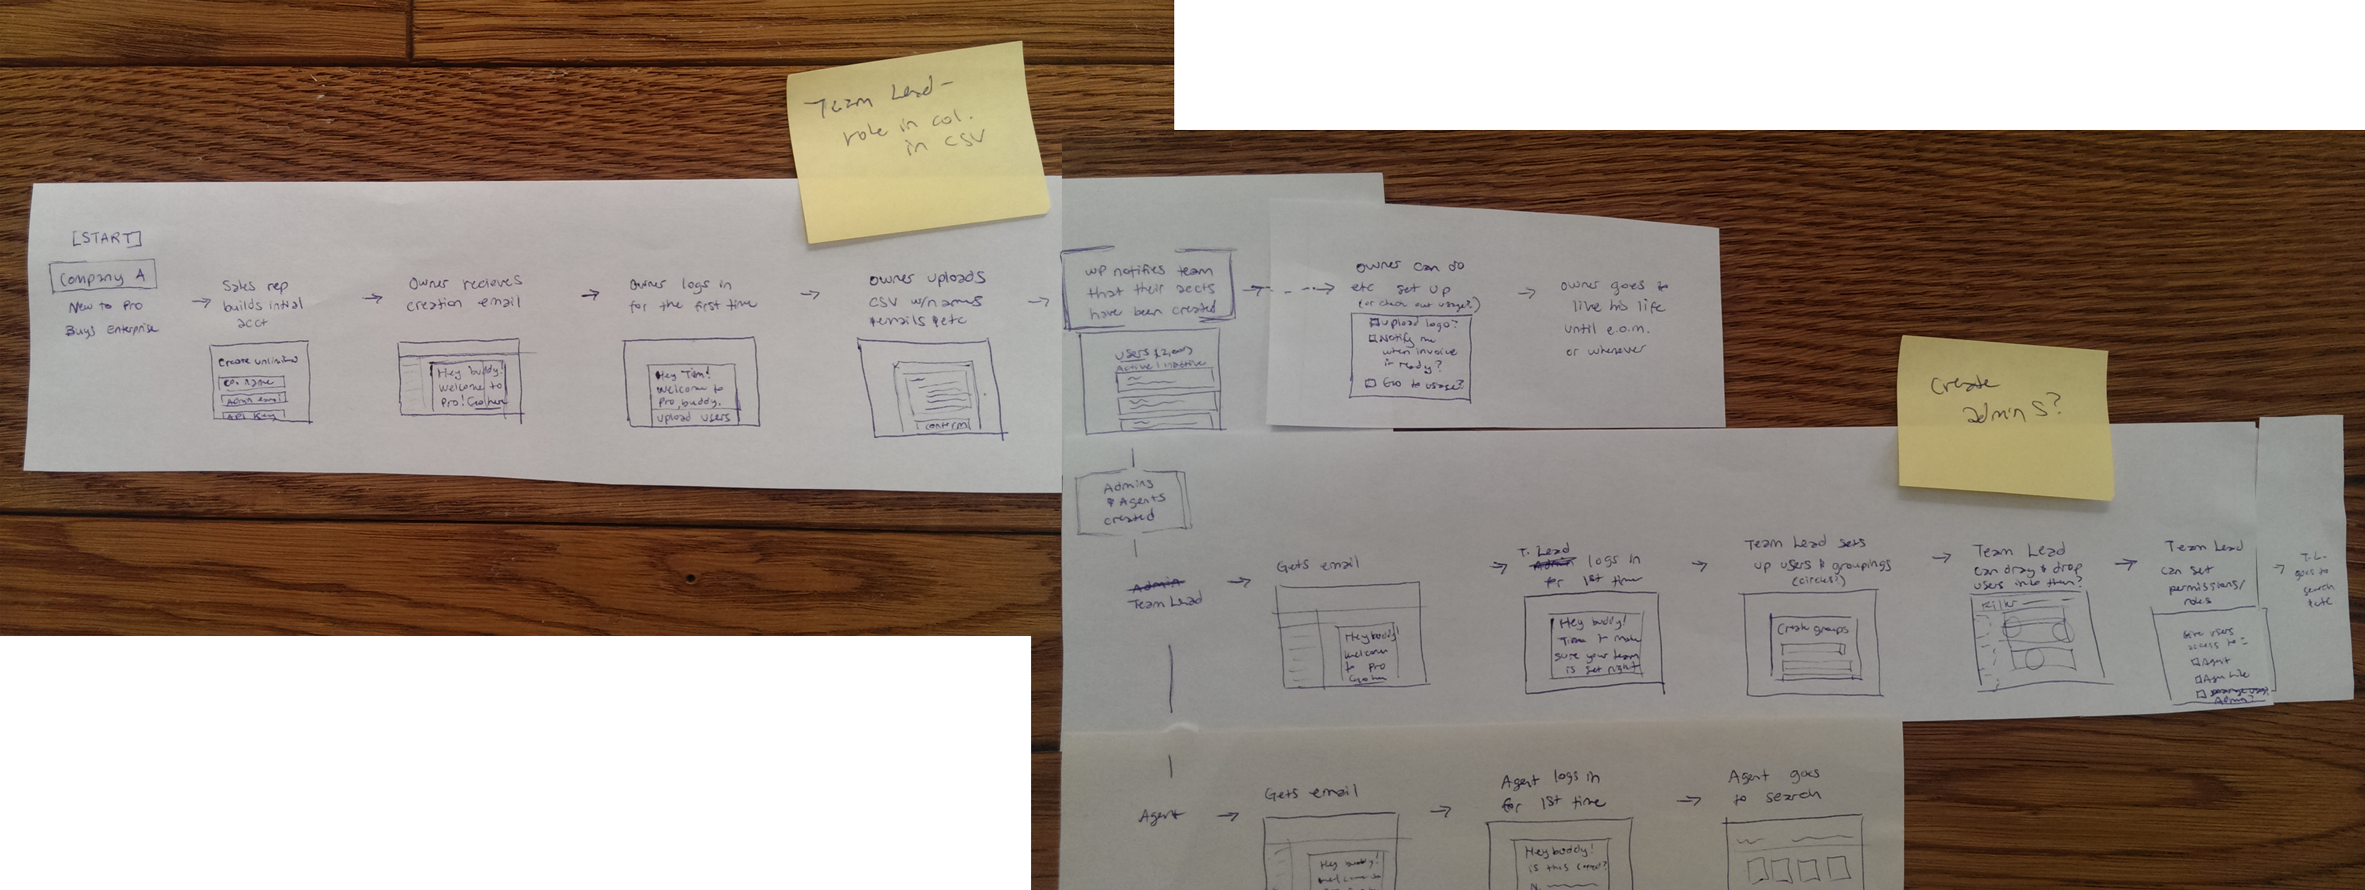 Team Lead -
role in col.
in CSV
[START]
Company A
New to Pro
Buys Enterprise
Sales rep
builds intial
acct
Create unlimited
Co. name
Admin email
API Key
Owner recieves
creation email
Hey buddy!
Welcome to
Pro! Go here
Owner logs in
for the first time
Hey Tim!
Welcome to
Pro, buddy.
Upload users
Owner uploads
CSV w/names
+emails +etc
Confirm
WP notifies team
that their accts
have been created
Users
Active | Inactive
Owner can do
etc set up
(or check out usage?)
Upload logo?
Notify me
when invoice
is ready?
Go to usage?
Owner goes to
live his life
until e.o.m.
or whenever
Create
admins?
Admins
& Agents
created
Admin
Team Lead
Gets email
Hey buddy!
Welcome
to Pro
Go here
T. Lead
Admin logs in
for 1st time
Hey buddy!
Time to make
sure your team
is set right
Team Lead sets
up users & groupings
(circus?)
Create groups
Team Lead
can drag & drop
users into them?
Filter
Team Lead
can set
permissions/
roles
Give users
access to:
Agent
Admin?
T.L.
goes to
search
Agent
Gets email
Hey buddy!
Welcome to
Agent logs in
for 1st time
Hey buddy!
is this correct?
N.
Agent goes
to search